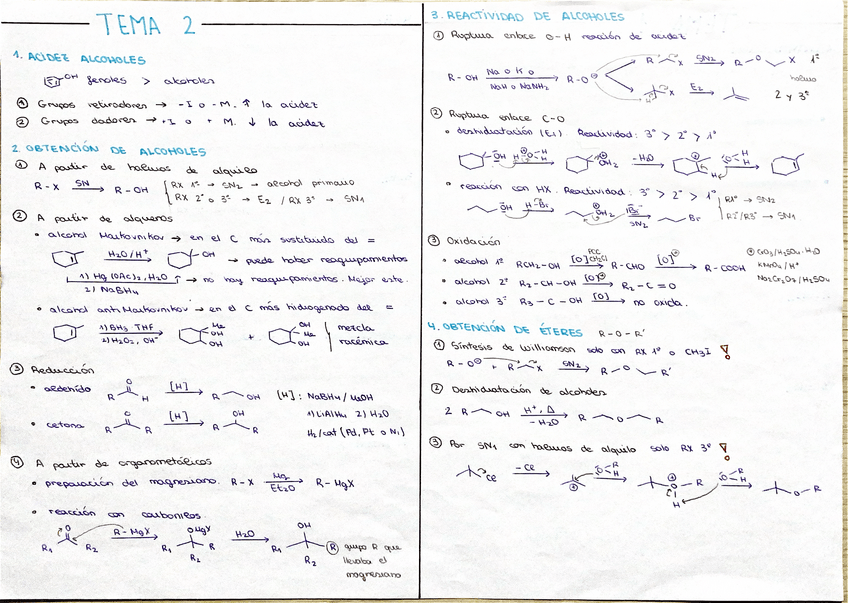 TEMA 2
1. ACIDEZ ALCOHOLES
OH fenoles > alcoholes
① Grupos retiradores → -I o -M. ↑ la acidez
② Grupos dadores → +I o +M. ↓ la acidez
2. OBTENCIÓN DE ALCOHOLES
① A partir de haluros de alquilo
R-X SN→ R-OH { RX 1º → SN2 → alcohol primario
RX 2º o 3º → E2 / RX 3º → SN1
② A partir de alquenos
• alcohol Markovnikov → en el C más sustituido del =
H2O/H+ OH → puede haber reagrupamientos
1) Hg(OAc)2, H2O → no hay reagrupamientos. Mejor este.
2) NaBH4
• alcohol antiMarkovnikov → en el C más hidrogenado del =
1) BH3 THF
2) H2O2, OH- Me OH OH + OH Me OH mezcla racémica
③ Reducción
• aldehído O R H [H]→ R OH [H]: NaBH4 / MeOH
1) LiAlH4 2) H2O
• cetona O R R [H]→ OH R R H2/cat (Pd, Pt o Ni)
④ A partir de organometálicos
• preparación del magnesiano. R-X Mg→ Et2O R-MgX
• reacción con carbonilos.
O R1 R2 R-MgX→ OMgX R1 R R2 H2O→ OH R1 R R2 grupo R que llevaba el magnesiano
3. REACTIVIDAD DE ALCOHOLES
① Ruptura enlace O-H reacción de acidez
R-OH Na o K o NaH o NaNH2→ R-O⊖
R X SN2→ R O X 1º
haluro
X H E2→ 2 y 3º
② Ruptura enlace C-O
• deshidratación (E1). Reactividad: 3º > 2º > 1º
OH H-O-H H → OH2 -H2O→ H O H H →
• reacción con HX. Reactividad: 3º > 2º > 1º
OH H-Br→ OH2 Br⊖ SN2→ Br RX1º → SN2
RX2º/RX3º → SN1
③ Oxidación
• alcohol 1º RCH2-OH [O] PCC CH2Cl2→ R-CHO [O]→ R-COOH
• alcohol 2º R2-CH-OH [O]→ R2-C=O
• alcohol 3º R3-C-OH [O]→ no oxida.
CrO3/H2SO4·H2O
KMnO4/H+
Na2Cr2O7/H2SO4
4. OBTENCIÓN DE ÉTERES R-O-R'
① Síntesis de Williamson solo con RX 1º o CH3I !
R-O⊖ + R X SN2→ R O R'
② Deshidratación de alcoholes
2 R OH H+, Δ→ -H2O R O R
③ Por SN1 con haluros de alquilo solo RX 3º !
Cl -Cl→ ⊕ O R H → O R H O R H → O-R